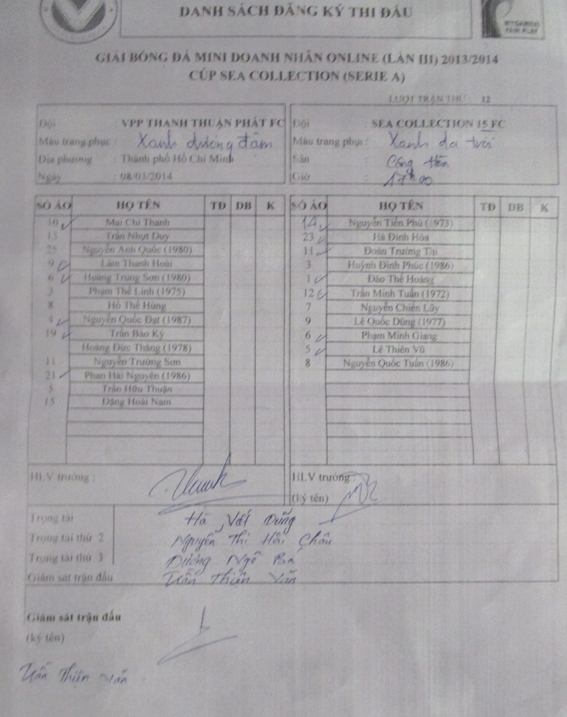 DANH SÁCH ĐĂNG KÝ THI ĐẤU
GIẢI BÓNG ĐÁ MINI DOANH NHÂN ONLINE (LẦN III) 2013/2014
CÚP SEA COLLECTION (SERIE A)
LƯỢT TRẬN THỨ: 12
Đội : VPP THANH THUẬN PHÁT FC Đội : SEA COLLECTION 15 FC
Màu trang phục : Xanh dương đậm Màu trang phục : Xanh da trời
Địa phương : Thành phố Hồ Chí Minh Sân :
Ngày : 08/03/2014 Giờ : 17h00
SỐ ÁO HỌ TÊN TĐ DB K SỐ ÁO HỌ TÊN TĐ DB K
10 Mai Chí Thanh 14 Nguyễn Tiến Phú (1973)
15 Trần Nhựt Duy 23 Hà Đình Hòa
25 Nguyễn Anh Quốc (1980) 11 Đoàn Trường Tài
9 Lâm Thanh Hoài 3 Huỳnh Đình Phúc (1986)
6 Hoàng Trung Sơn (1980) 1 Đào Thế Hoàng
3 Phạm Thế Linh (1975) 12 Trần Minh Tuấn (1972)
8 Hồ Thế Hùng 7 Nguyễn Chiến Lũy
4 Nguyễn Quốc Đạt (1987) 9 Lê Quốc Dũng (1977)
19 Trần Bảo Kỳ 6 Phạm Minh Giang
Hoàng Đức Thăng (1978) 5 Lê Thiên Vũ
11 Nguyễn Trường Sơn 8 Nguyễn Quốc Tuấn (1986)
21 Phan Hải Nguyên (1986)
5 Trần Hữu Thuận
15 Đặng Hoài Nam
HLV trưởng : HLV trưởng
(ký tên)
Trọng tài Hà Việt Dũng
Trọng tài thứ 2 Nguyễn Thị Hải Châu
Trọng tài thứ 3 Dương Ngô Bá
Giám sát trận đấu Trần Thiện Văn
Giám sát trận đấu
(ký tên)
Trần Thiện Văn